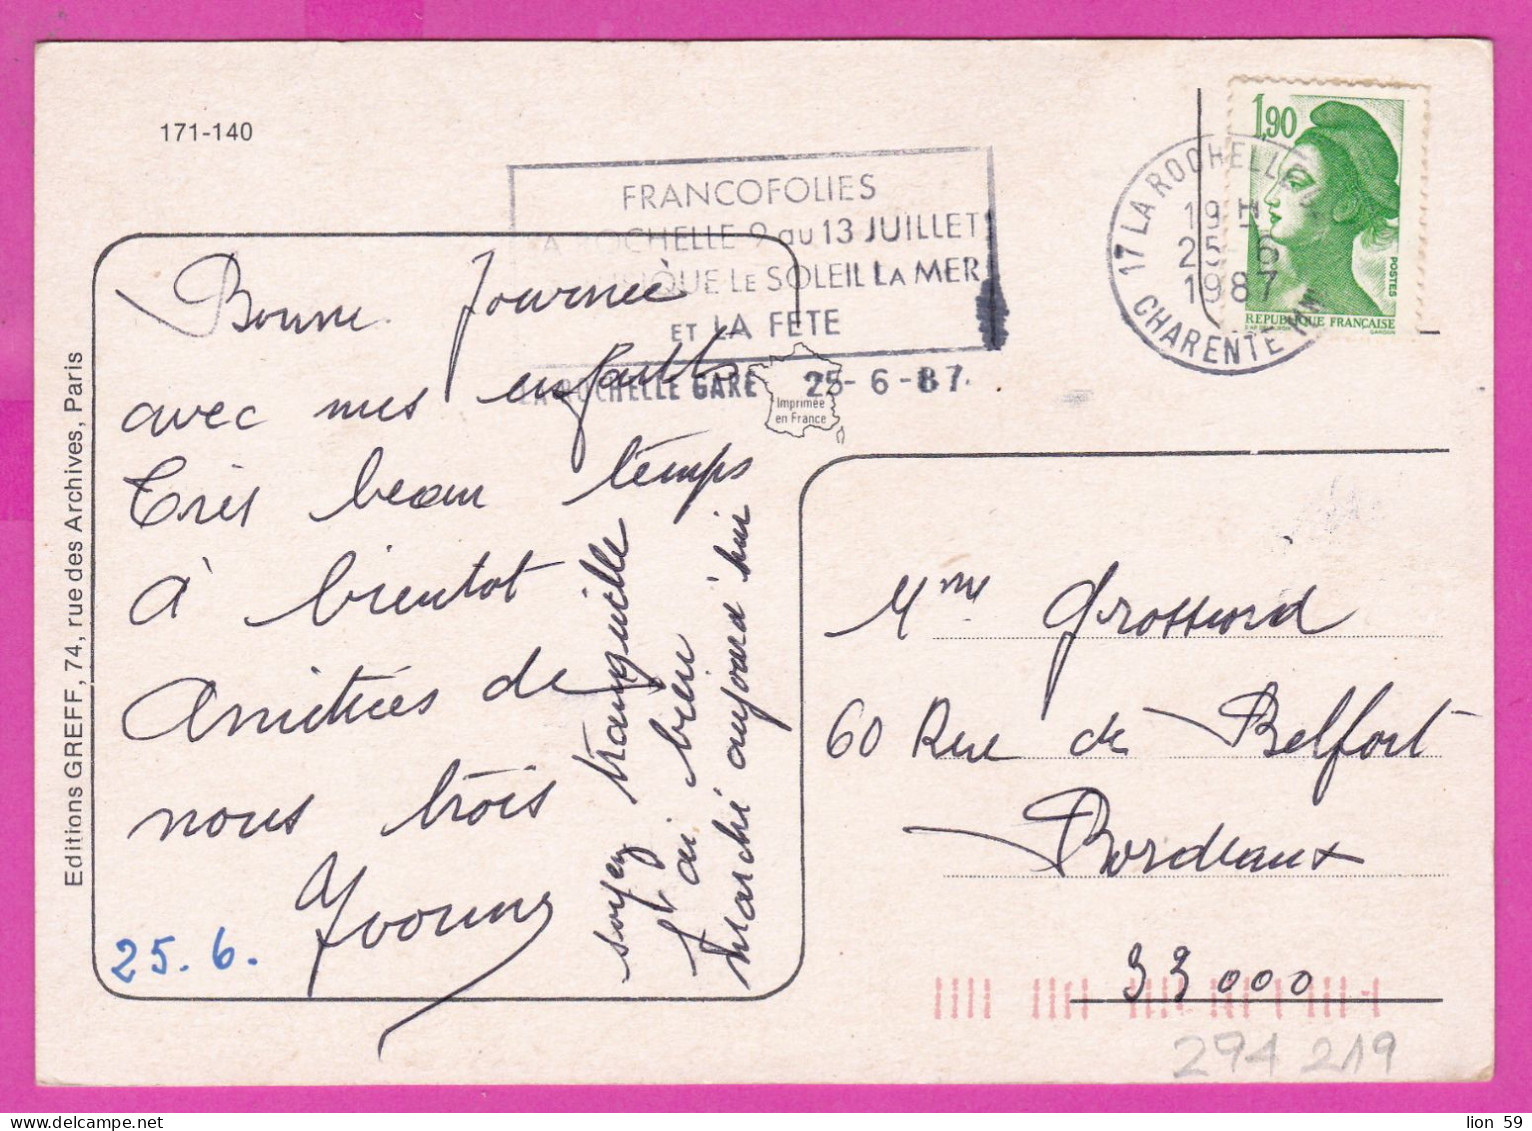 171-140
FRANCOFOLIES
ROCHELLE 9 au 13 JUILLET
LE SOLEIL LA MER
ET LA FETE
LA ROCHELLE GARE 25-6-87.
17 LA ROCHELLE
19 H
25-6
1987
CHARENTE MME
1,90
POSTES
REPUBLIQUE FRANÇAISE
Imprimée
en France
Editions GREFF, 74, rue des Archives, Paris
Bonne Journée
avec mes enfants
Très beau temps
à bientot
Amitiées de
nous trois
Yvonne
25.6.
soyez tranquille
bien
marché aujourd hui
Mme
60 Rue de Belfort
Bordeaux
33000
294 219
lion 59